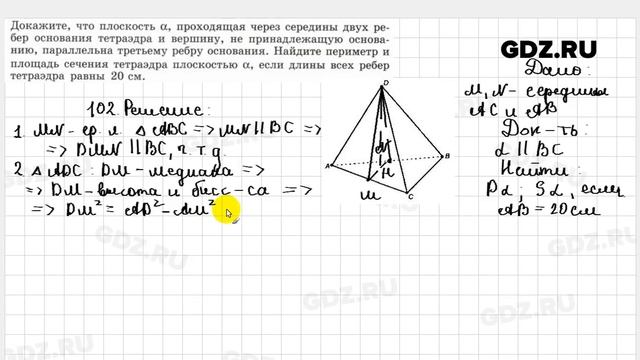 Докажите, что плоскость α, проходящая через середины двух ре-
бер основания тетраэдра и вершину, не принадлежащую основа-
нию, параллельна третьему ребру основания. Найдите периметр и
площадь сечения тетраэдра плоскостью α, если длины всех ребер
тетраэдра равны 20 см.
GDZ.RU
Дано:
M, N - середины
AC и AB
Док-ть:
α || BC
Найти:
Pα; Sα, если
AB = 20 см
102. Решение:
1. MN - ср. л. △ ABC => MN || BC =>
=> DMN || BC, ч. т. д.
2. △ ADC: DM - медиана =>
=> DM - высота и бисс-са =>
=> DM² = AD² - AM²
D
A
B
C
M
N
GDZ.RU
GDZ.RU
GDZ.RU
GDZ.RU